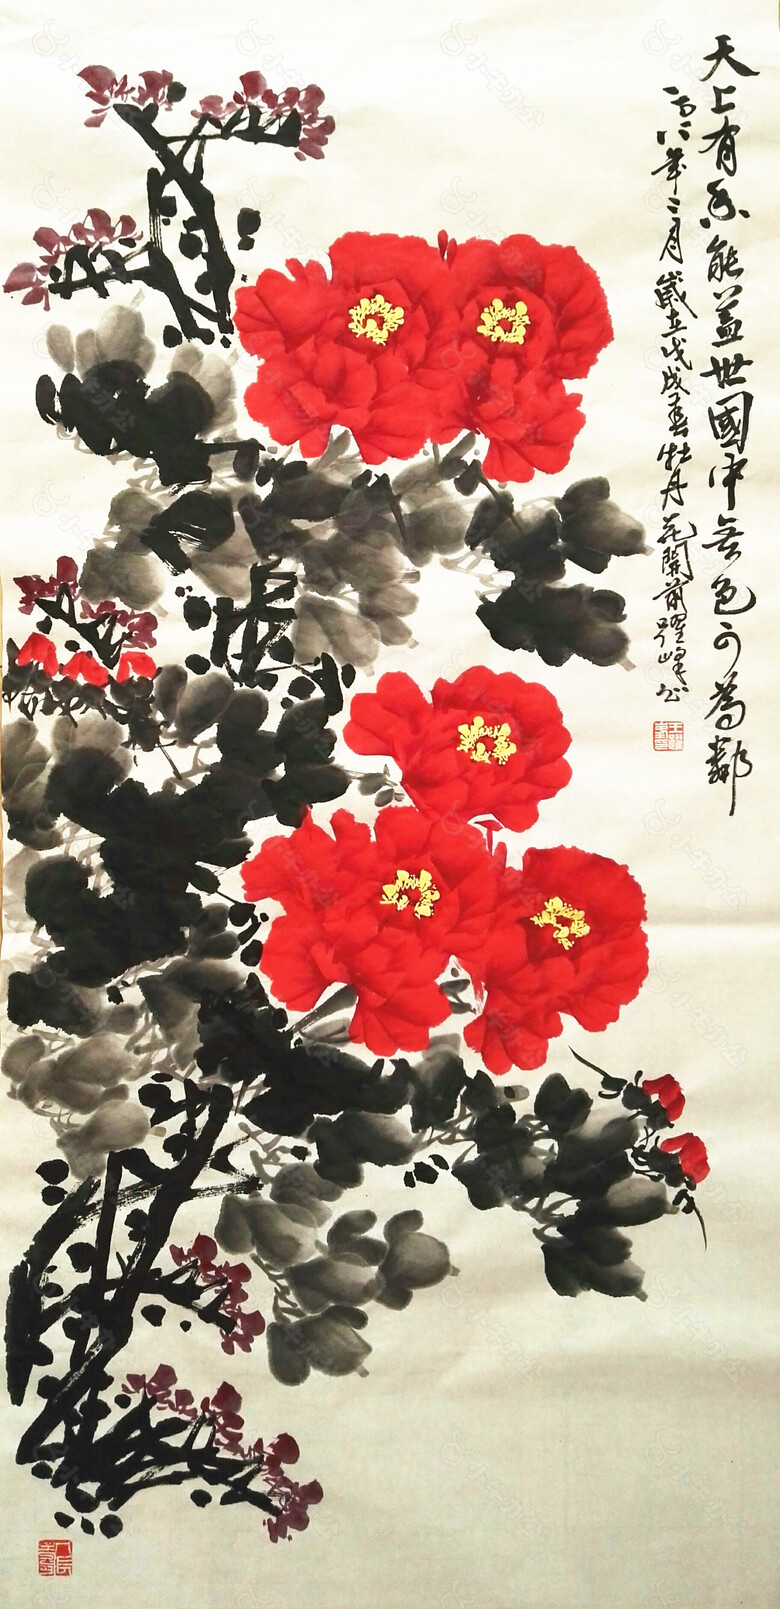 天上有香能蓋世國中無色可為鄰
二〇一八年二月歲在戊戌春牡丹花開前躍峰書